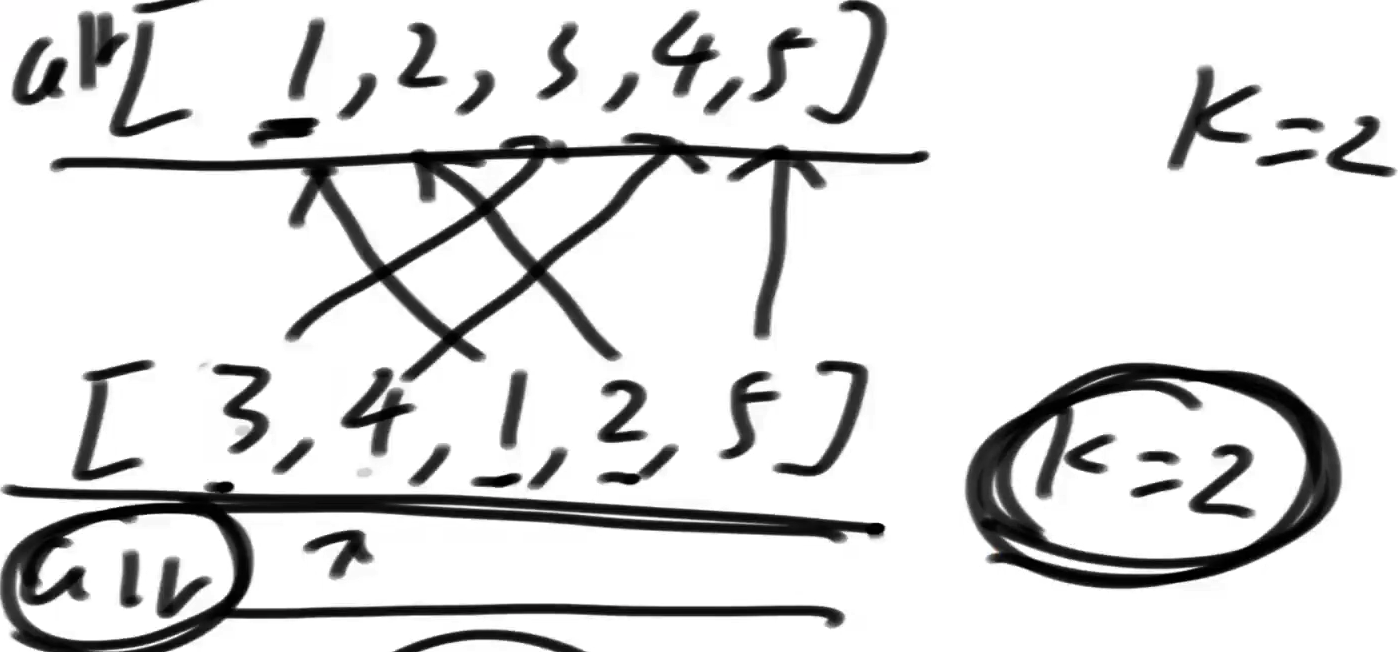 arr[ 1, 2, 3, 4, 5 ] K=2
[ 3, 4, 1, 2, 5 ] K=2
arr